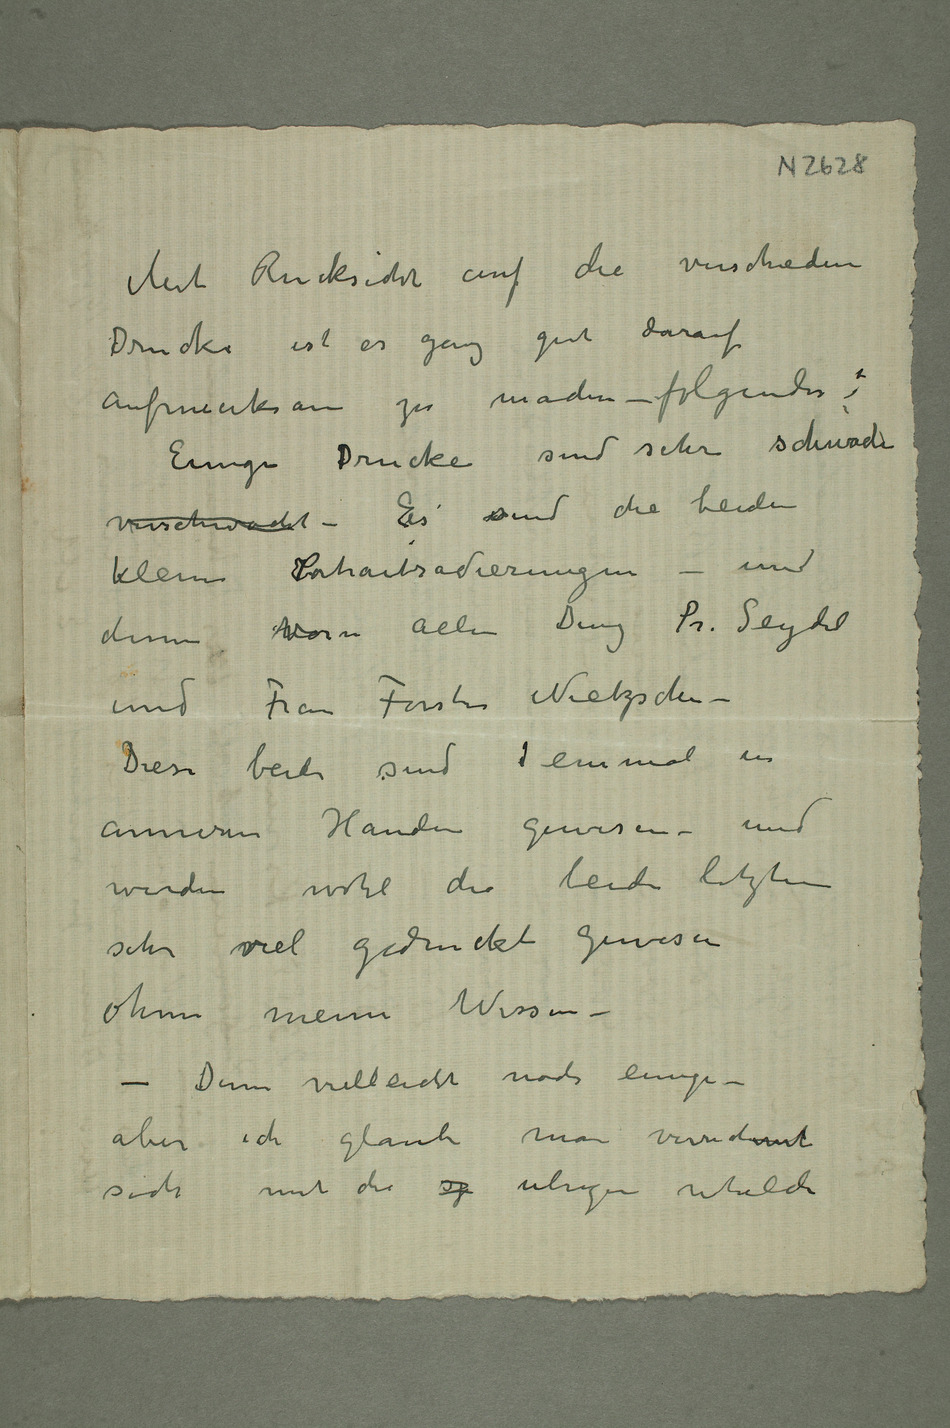 N 2628
Mit Rucksicht auf die verschieden
Drucke ist es ganz gut darauf
aufmerksam zu machen – folgendes :
Einige Drucke sind sehr schwach
verschwacht – Es sind die beiden
kleine Portraitsradierungen – und
denn vorn allen Ding Pr. Seydel
und Frau Forster Nietzsche –
Diese beide sind 1 einmal in
anneren Handen gewesen – und
werden wohl die beide letzten
sehr viel gedruckt gewesen
ohne meine Wissen –
– Denn vielleicht noch einige –
aber ich glaube man
sich mit die ubrigen